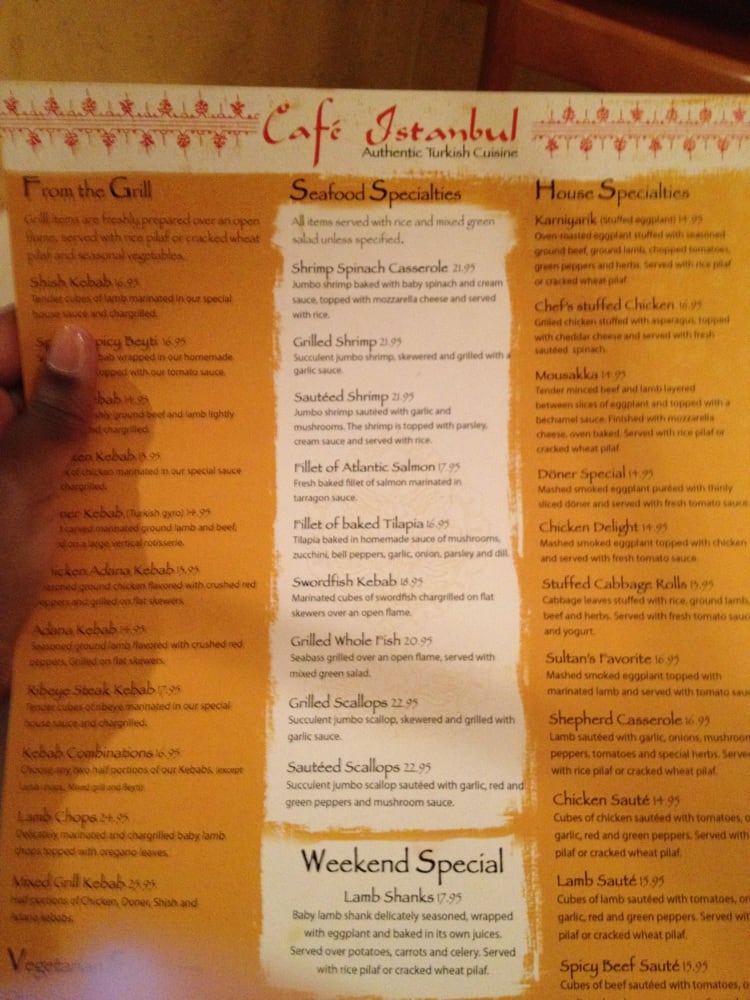 Café Istanbul
Authentic Turkish Cuisine
From the Grill
Grill items are freshly prepared over an open
flame, served with rice pilaf or cracked wheat
pilaf and seasonal vegetables.
Shish Kebab 16.95
Tender cubes of lamb marinated in our special
house sauce and chargrilled.
Spicy Beyti 16.95
wrapped in our homemade
topped with our tomato sauce.
14.95
ground beef and lamb lightly
chargrilled.
Kebab 15.95
of chicken marinated in our special sauce
chargrilled.
Kebab (Turkish gyro) 14.95
carved marinated ground lamb and beef,
on a large vertical rotisserie.
Chicken Adana Kebab 15.95
ground chicken flavored with crushed red
peppers and grilled on flat skewers.
Adana Kebab 14.95
Seasoned ground lamb flavored with crushed red
peppers. Grilled on flat skewers.
Ribeye Steak Kebab 17.95
Tender cubes of ribeye marinated in our special
house sauce and chargrilled.
Kebab Combinations 16.95
Choose any two half portions of our Kebabs. (except
Lamb chops, Mixed grill and Beyti)
Lamb Chops 24.95
Delicately marinated and chargrilled baby lamb
chops topped with oregano leaves.
Mixed Grill Kebab 25.95
Half portions of Chicken, Doner, Shish and
Adana kebabs.
Vegetarian
Seafood Specialties
All items served with rice and mixed green
salad unless specified.
Shrimp Spinach Casserole 21.95
Jumbo shrimp baked with baby spinach and cream
sauce, topped with mozzarella cheese and served
with rice.
Grilled Shrimp 21.95
Succulent jumbo shrimp, skewered and grilled with a
garlic sauce.
Sautéed Shrimp 21.95
Jumbo shrimp sautéed with garlic and
mushrooms. The shrimp is topped with parsley,
cream sauce and served with rice.
Fillet of Atlantic Salmon 17.95
Fresh baked fillet of salmon marinated in
tarragon sauce.
Fillet of baked Tilapia 16.95
Tilapia baked in homemade sauce of mushrooms,
zucchini, bell peppers, garlic, onion, parsley and dill.
Swordfish Kebab 18.95
Marinated cubes of swordfish chargrilled on flat
skewers over an open flame.
Grilled Whole Fish 20.95
Seabass grilled over an open flame, served with
mixed green salad.
Grilled Scallops 22.95
Succulent jumbo scallop, skewered and grilled with
garlic sauce.
Sautéed Scallops 22.95
Succulent jumbo scallop sautéed with garlic, red and
green peppers and mushroom sauce.
Weekend Special
Lamb Shanks 17.95
Baby lamb shank delicately seasoned, wrapped
with eggplant and baked in its own juices.
Served over potatoes, carrots and celery. Served
with rice pilaf or cracked wheat pilaf.
House Specialties
Karniyarik (Stuffed eggplant) 14.95
Oven roasted eggplant stuffed with seasoned
ground beef, ground lamb, chopped tomatoes,
green peppers and herbs. Served with rice pilaf
or cracked wheat pilaf.
Chef's stuffed Chicken 16.95
Grilled chicken stuffed with asparagus, topped
with cheddar cheese and served with fresh
sautéed spinach.
Mousakka 14.95
Tender minced beef and lamb layered
between slices of eggplant and topped with a
béchamel sauce. Finished with mozzarella
cheese, oven baked. Served with rice pilaf or
cracked wheat pilaf.
Döner Special 14.95
Mashed smoked eggplant puréed with thinly
sliced döner and served with fresh tomato sauce
Chicken Delight 14.95
Mashed smoked eggplant topped with chicken
and served with fresh tomato sauce.
Stuffed Cabbage Rolls 15.95
Cabbage leaves stuffed with rice, ground lamb,
beef and herbs. Served with fresh tomato
and yogurt.
Sultan's Favorite 16.95
Mashed smoked eggplant topped with
marinated lamb and served with tomato
Shepherd Casserole 16.95
Lamb sautéed with garlic, onions,
peppers, tomatoes and special herbs.
with rice pilaf or cracked wheat pilaf.
Chicken Sauté 14.95
Cubes of chicken sautéed with tomatoes,
garlic, red and green peppers. Served with
pilaf or cracked wheat pilaf.
Lamb Sauté 15.95
Cubes of lamb sautéed with tomatoes,
garlic, red and green peppers. Served
pilaf or cracked wheat pilaf.
Spicy Beef Sauté 15.95
Cubes of beef sautéed with tomatoes,